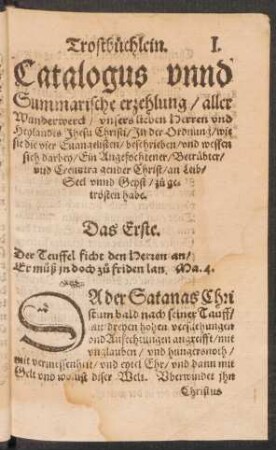 Trostbüchlein. I.
Catalogus vnnd
Summarische erzehlung / aller
Wunderwerck / vnsers lieben Herren vnd
Heylandts Jhesu Christi / In der Ordnung / wie
sie die vier Euangelisten / beschrieben / vnd wessen
sich darbey / Ein Angefochtener / Betrübter /
vnd Creutztragender Christ / an Leib /
Seel vnnd Geyst / zů ge-
trösten habe.
Das Erste.
Der Teuffel ficht den Herren an /
Er můß jn doch zů friden lan. Ma. 4.
DA der Satanas Chri
stum bald nach seiner Tauff /
mit dreyen hohen versůchungen
vnd Anfechtungen angreifft / mit
vnglauben / vnd hungersnoth /
mit vermessenheit / vnd eytel Ehr / vnd dann mit
Gelt vnd wollust diser Welt. Vberwindet jhn
Christus